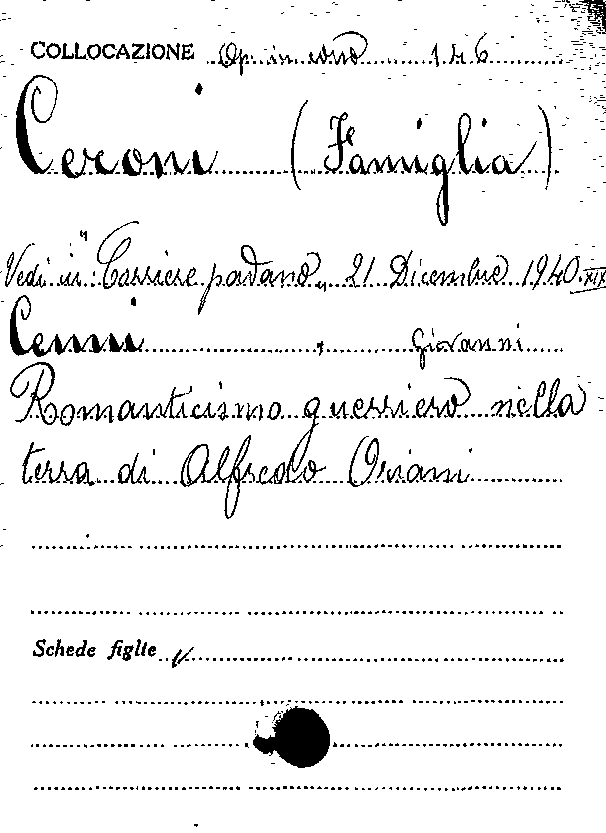 COLLOCAZIONE Op. in corso 146
Ceroni (Famiglia)
Vedi in: "Corriere padano" 21 Dicembre 1940. XIX
Cenni, Giovanni
Romanticismo guerriero nella
terra di Alfredo Oriani
Schede figlie